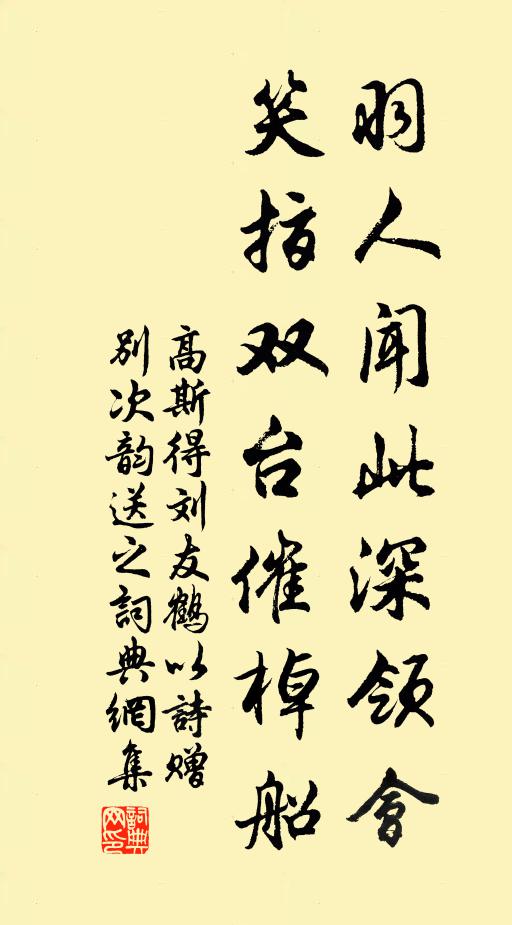 羽人闻此深领会
笑指双台催棹船
高斯得刘友鹤以詩赠
别次韵送之詞典網集
詞典
网印